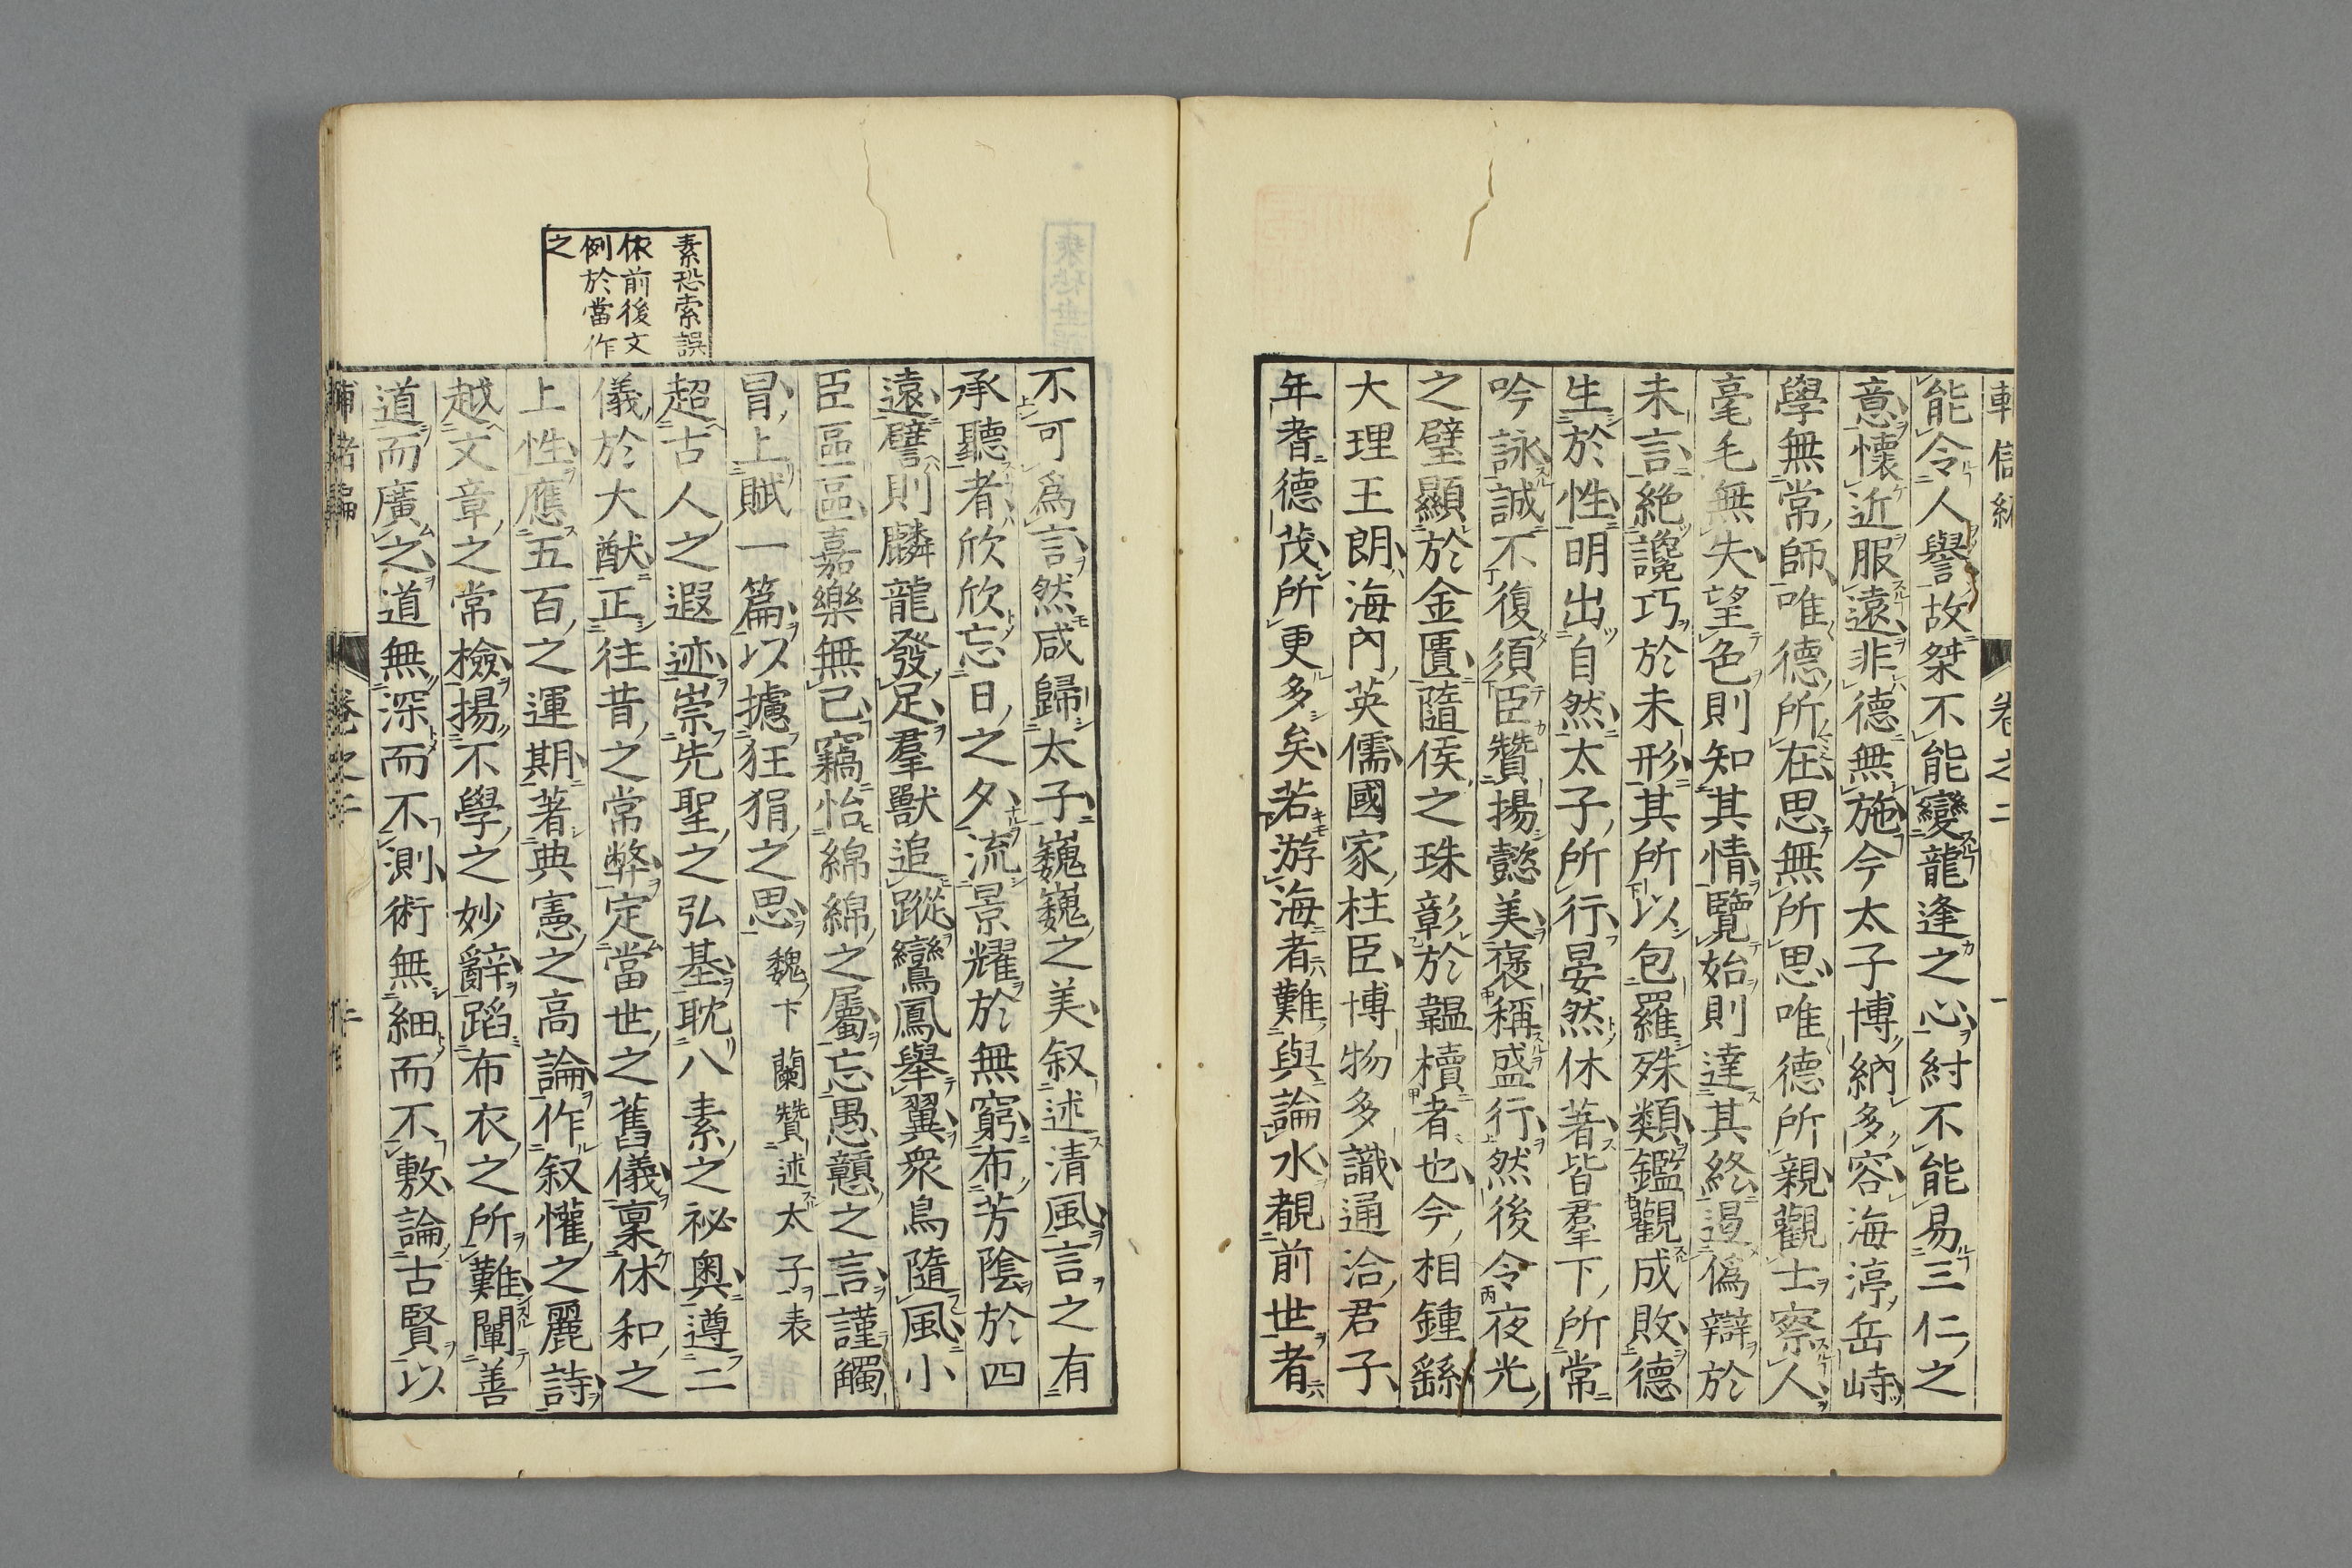 能令人譽故桀不能變龍逢之心紂不能易三仁之
意懷近服遠非德無施今太子博納多容海渟岳峙
學無常師唯德所在思無所思唯德所親觀士察人
毫毛無失望色則知其情覽始則達其終遏僞辯於
未言絶讒巧於未形其所以包羅殊類鑑觀成敗德
生於性明出自然太子所行晏然休著皆羣下所常
吟詠誠不復須臣贊揚懿美褒稱盛行然後令夜光
之璧顯於金匱隨侯之珠彰於韞櫝者也今相鍾繇
大理王朗海內英儒國家柱臣博物多識通洽君子
年耆德茂所更多矣若游海者難與論水覩前世者
不可爲言然咸歸太子巍巍之美叙述清風言之有
承聽者欣欣忘日之夕流景耀於無窮布芳陰於四
遠譬則麟龍發足羣獸追蹤鸞鳳舉翼衆鳥隨風小
臣區區嘉樂無已竊怡綿綿之屬忘愚戇之言謹觸
冒上賦一篇以攄狂狷之思魏卞蘭贊述太子表
超古人之遐迹崇先聖之弘基耽八素之祕奧遵二
儀於大猷正往昔之常弊定當世之舊儀稟休和之
上性應五百之運期著典憲之高論作叙懽之麗詩
越文章之常檢揚不學之妙辭蹈布衣之所難闡善
道而廣之道無深而不測術無細而不敷論古賢以
素恐索誤
依前後文
例於當作
之
卷之二